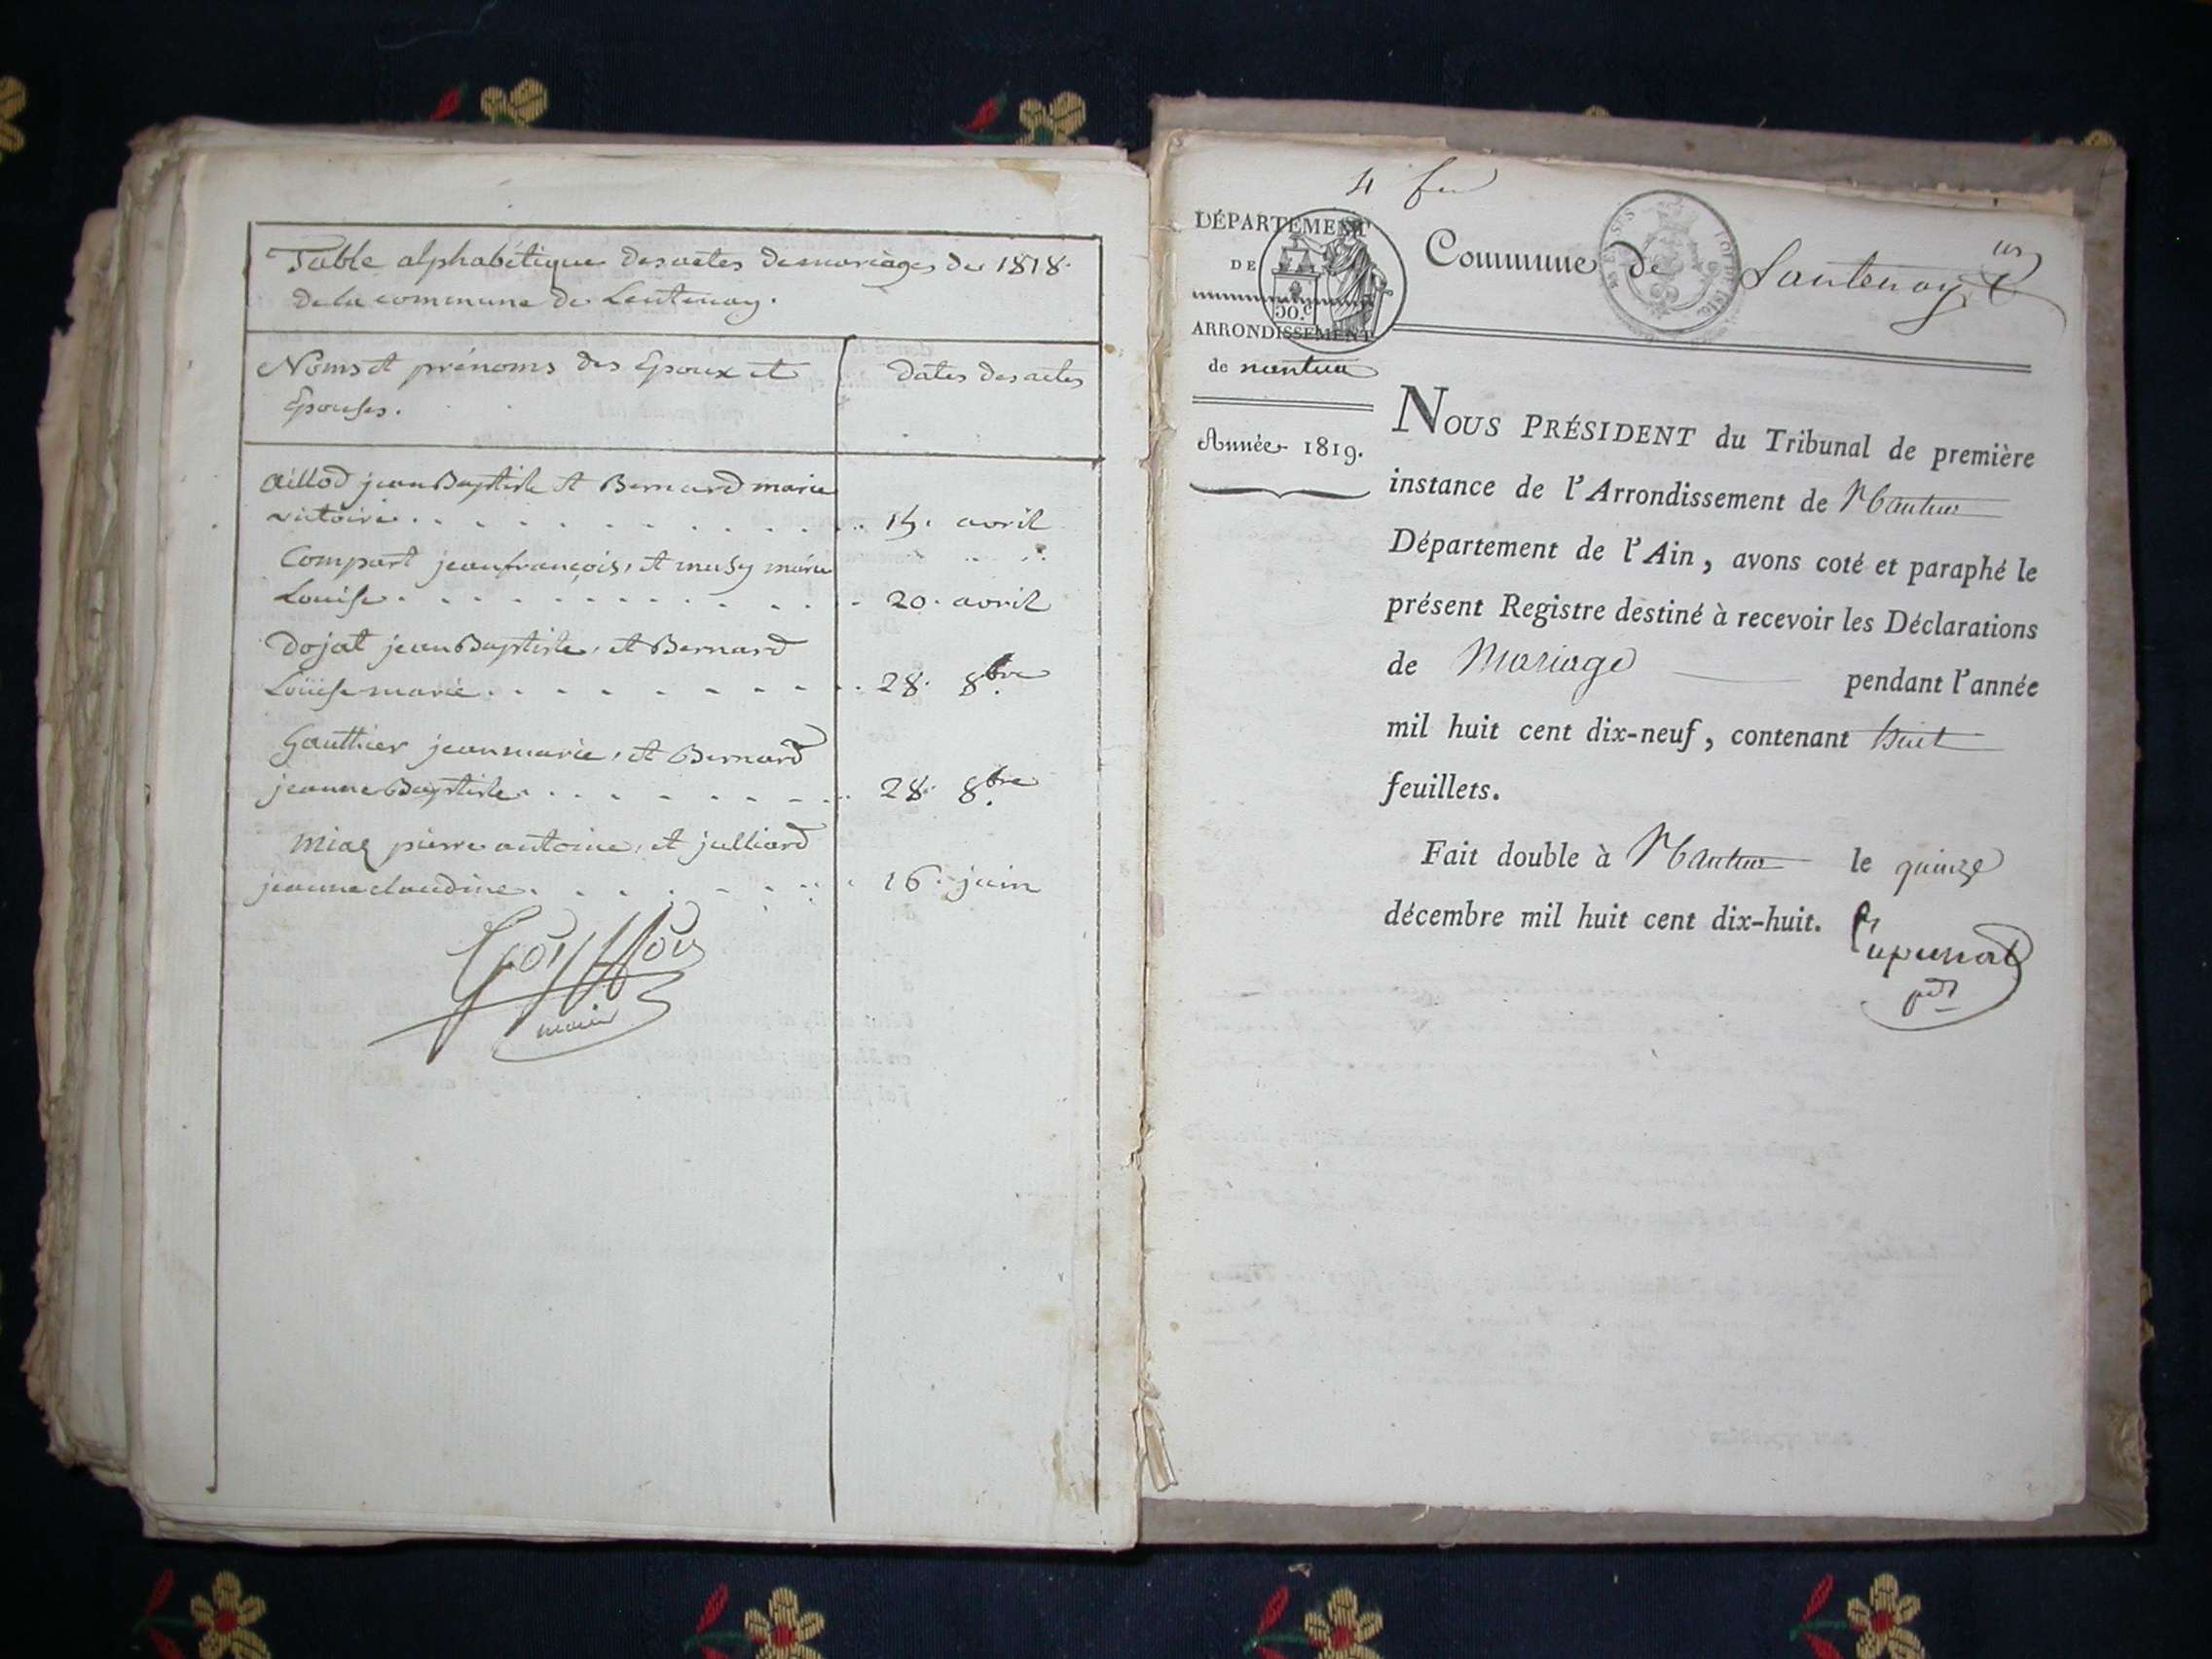 Table alphabétique des actes de mariages de 1818.
de la commune de Lentenay.
Noms et prénoms des Epoux et
Epouses.
Dates des actes
Aillod jean Baptiste et Bernard marie
victoire . . . . . . . . . . . . 15. avril
Compart jean françois, et musy marie
Louise . . . . . . . . . . . . 20. avril
Dojat jean Baptiste, et Bernard
Loüise marie . . . . . . . . . . 28. 8bre
Gauthier jean marie, et Bernard
jeanne Baptiste . . . . . . . . . 28. 8bre
miaz pierre antoine, et julliard
jeanne claudine . . . . . . . . . 16. juin
maire
4 feu
DÉPARTEMENT
DE
50.c
ARRONDISSEMENT
de nantua
Année 1819.
Commune de Lantenay
NOUS PRÉSIDENT du Tribunal de première
instance de l'Arrondissement de Nantua
Département de l'Ain, avons coté et paraphé le
présent Registre destiné à recevoir les Déclarations
de Mariage pendant l'année
mil huit cent dix-neuf, contenant huit
feuillets.
Fait double à Nantua le quinze
décembre mil huit cent dix-huit.
pdt